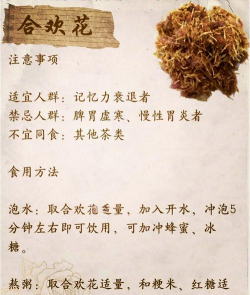 合欢花
注意事项
适宜人群：记忆力衰退者
禁忌人群：脾胃虚寒、慢性胃炎者
不宜同食：其他茶类
食用方法
泡水：取合欢花适量，加入开水，冲泡5
分钟左右即可饮用，可加冲蜂蜜、冰
糖。
熬粥：取合欢花适量，和粳米、红糖适